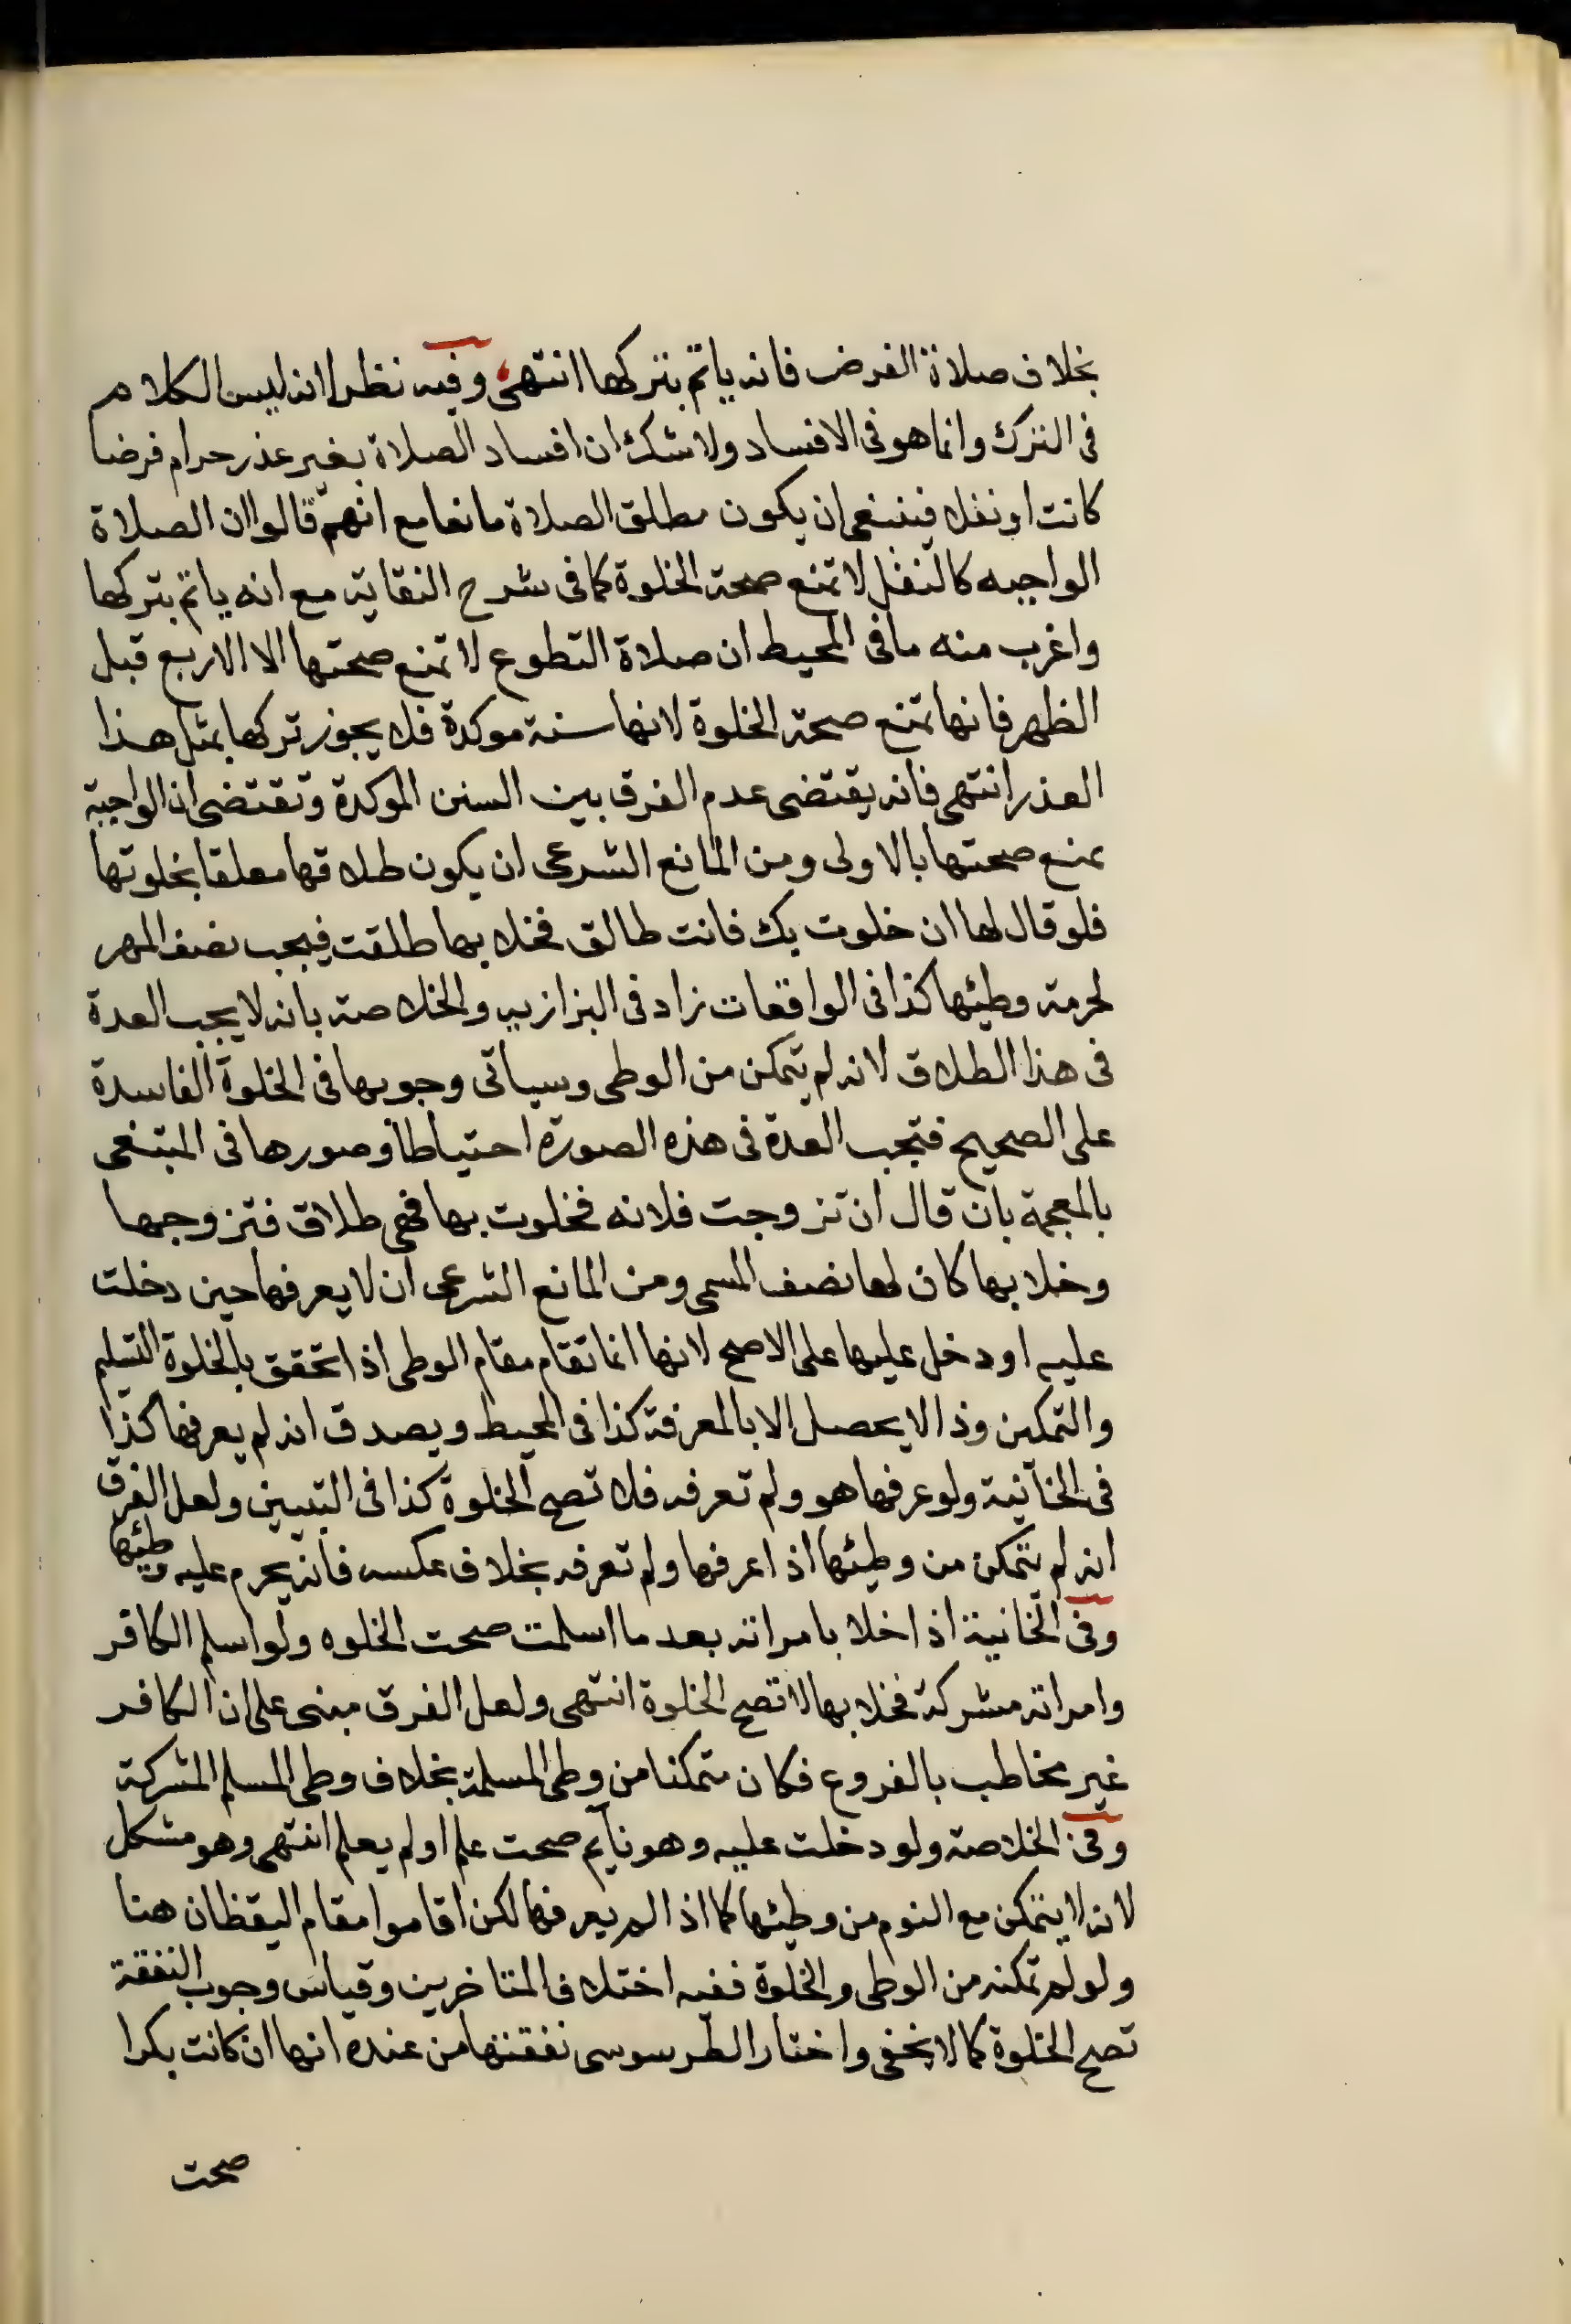 بخلاف صلاة الفرض فانه ياثم بتركها انتهى وفيه نظر اانه ليس الكلام
فى الترك وانما هو فى الافساد ولا شك ان افساد الصلاة بغير عذر حرام فرضا
كانت او نفلا فينبغى ان يكون مطلق الصلاة مانعا مع انهم قالوا ان الصلاة
الواجبه كالنفل لا تمنع صحة الخلوة كما فى شرح النقاية مع انه ياثم بتركها
واغرب منه ما فى المحيط ان صلاة التطوع لا تمنع صحتها الا الاربع قبل
الظهر فانها تمنع صحة الخلوة لانها سنة موكدة فلا يجوز تركها بمثل هذا
العذر انتهى فانه يقتضى عدم الفرق بين السنن الموكدة وتقتضى ان الواجبة
تمنع صحتها بالاولى ومن المانع الشرعى ان يكون طلاقها معلقا بخلوتها
فلو قال لها ان خلوت بك فانت طالق فخلا بها طلقت فيجب نصف المهر
لحرمة وطيئها كذا فى الواقعات زاد فى البزازيه والخلاصة بانه لا يجب العدة
فى هذا الطلاق لانه لم يتمكن من الوطى وسياتى وجوبها فى الخلوة الفاسدة
على الصحيح فتجب العدة فى هذه الصورة احتياطا وصورها فى المبتغى
بالمعجمة بان قال ان تزوجت فلانه فخلوت بها فهى طلاق فتزوجها
وخلا بها كان لها نصف المسمى ومن المانع الشرعى ان لا يعرفها حين دخلت
عليه او دخل عليها على الاصح لانها انما تقام مقام الوطى اذا تحقق بالخلوة التسليم
والتمكين وذا لا يحصل الا بالمعرفة كذا فى المحيط ويصدق انه لم يعرفها كذا
فى الخانية ولو عرفها هو ولم تعرفه فلا تصح الخلوة كذا فى التبيين ولعل الفرق
انه لم يتمكن من وطيئها اذا عرفها ولم تعرفه بخلاف عكسه فانه يحرم عليه وطيئها
وفى الخانية اذا خلا بامراته بعد ما اسلمت صحت الخلوه ولو اسلم الكافر
وامراته مشركة فخلا بها لا تصح الخلوة انتهى ولعل الفرق مبنى على ان الكافر
غير مخاطب بالفروع فكان متمكنا من وطى المسلمة بخلاف وطى المسلم المشركة
وفى الخلاصة ولو دخلت عليه وهو نايم صحت علم او لم يعلم انتهى وهو مشكل
لانه لا يتمكن مع النوم من وطيئها كما اذا لم يعرفها لكن اقاموا مقام اليقظان هنا
ولو لم تمكنه من الوطى والخلوة ففيه اختلاف المتاخرين وقياس وجوب النفقة
تصح الخلوة كما لا يخفى واختار الطرسوسى نفقتها من عنده انها ان كانت بكرا
صحت